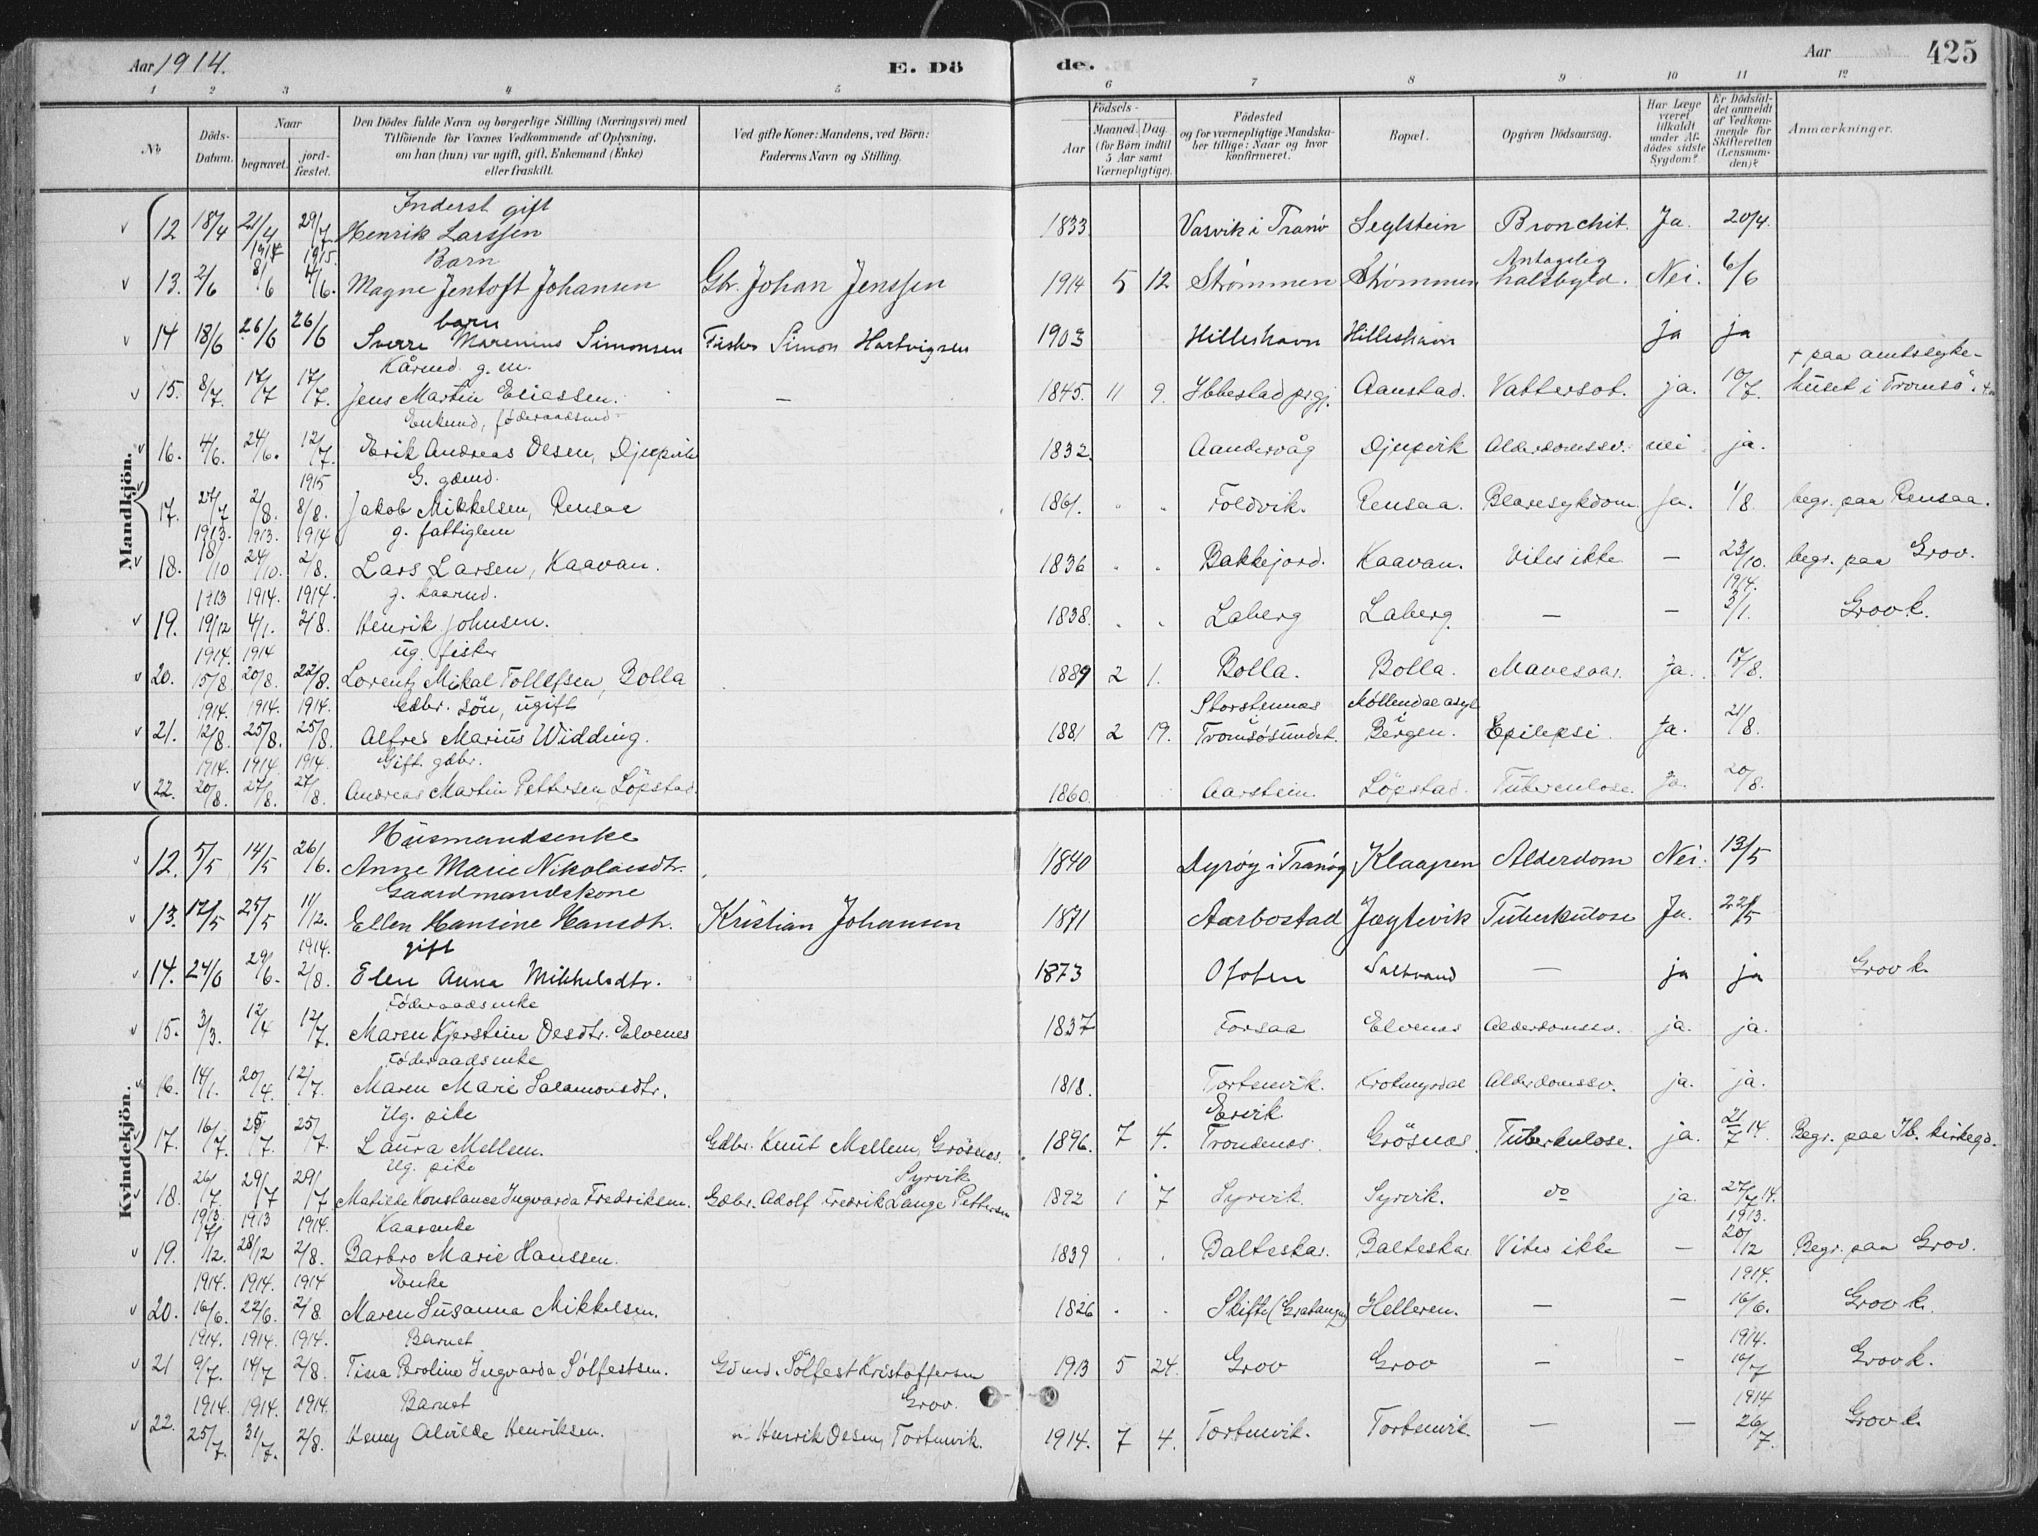 Aar 1914.
E. Dö
de.
Aar
425
1 2 3 4 5 6 7 8 9 10 11 12
No
Döds-Datum.
Naar
begravet.
jord-fæstet.
Den Dödes fulde Navn og borgerlige Stilling (Næringsvei) med
Tilföiende for Voxnes Vedkommende af Oplysning,
om han (hun) var ugift, gift, Enkemand (Enke)
eller fraskilt.
Ved gifte Koner: Mandens, ved Börn:
Faderens Navn og Stilling.
Födsels-
Aar
Maaned. Dag.
(for Börn indtil
5 Aar samt
Værnepligtige).
Födested
og for værnepligtige Mandska-
ber tillige: Naar og hvor
konfirmeret.
Bopæl.
Opgiven Dödsaarsag.
Har Læge
været
tilkaldt
under Af-
dödes sidste
Sygdom?
Er Dödsfal-
det anmeldt
af Vedkom-
mende for
Skifteretten
(Lensman-
den)?
Anmærkninger.
Mandkjön.
Inderst gift
12 18/4 21/4 29/7 Henrik Larssen 1833 Vasvik i Tranö Seglstein Bronchit. Ja. 20/4.
1914 1915.
Barn Antagelig
13. 2/6 8/6 4/6. Magne Jentoft Johansen Gbr. Johan Jenssen 1914 5 12 Strömmen Strömmen halsbyld. Nei. 6/6
barn
14 18/6 26/6 26/6 Sverre Marenius Simonsen Fisker Simon Hartvigsen 1903 Hilleshavn Hilleshavn ja ja
Kårmd. g. m. + paa amtssyke-
15. 8/7. 17/7 17/7. Jens Martin Eliassen. — 1845. 11 9. Ibbestad prgj. Aanstad. Vattersot. ja. 10/7. huset i Tromsö
Enkemd, föderaadsmd
16. 4/6. 24/6. 12/7. Erik Andreas Olsen, Djupvik 1832. Aandervåg Djupvik Alderdomssv. nei ja.
1915
G. gdmd.
17. 27/7 2/8. 8/8. Jakob Mikkelsen, Rensaa 1861. " " Foldvik. Rensaa. Blæresykdom Ja. 1/8. begr. paa Rensaa.
1913. 1913. 1914 g. fattiglem
18. 18/10 24/10. 2/8. Lars Larsen, Kaavan. 1836 . . Bakkejord. Kaavan. Vites ikke — 23/10. begr. paa Grov.
1913 1914. 1914. g. kaarmd. 1914.
19. 19/12 4/1. 2/8. Henrik Johnsen. 1838. . . Laberg Laberg. — — 2/1. Grov k.
1914. 1914 ug. fisker
20. 15/8. 20/8. 22/8. Lorentz Mikal Tollefsen, Bolla 1889 2 1. Bolla. Bolla. Mavesaar. Ja. 17/8.
1914. 1914. 1914. Gdbr. sön, ugift Storstennæs Möllendal asyl
21. 12/8. 25/8. 25/8. Alfred Marius Widding. 1881 2 19. i Tromsösundet. i Bergen. Epilepsi. Ja. 21/8.
1914. 1914. 1914. Gift. gdbr.
22. 20/8. 27/8. 27/8. Andreas Martin Pettersen, Löpstad. 1860. Aarstein. Löpstad. Tuberculose. Ja. 20/8.
Kvindekjön.
Husmandsenke
12. 5/5 14/5 26/6. Anne Marie Nikolaisdtr. 1840 Dyröy i Tranöy Klaapen Alderdom Nei. 13/5
Gaardmandskone
13. 17/5 25/5 11/12. Ellen Hansine Hansdtr. Kristian Johansen 1871 Aarbostad Jægtevik Tuberkulose Ja. 22/5
1914.
gift
14. 24/6 29/6. 2/8. Elen Anna Mikkelsdtr. 1873 Ofoten Saltvand — ja ja Grov k.
Föderaadsenke
15. 3/3. 12/4 12/7. Maren Kjerstein Olsdtr. Elvenes 1837 Forsaa Elvenes Alderdomssv. ja. ja.
Föderaadsenke
16. 14/1. 20/4. 12/7. Maren Marie Salamonsdtr. 1818. Tortenvik. Krokmyrdal Alderdomssv. ja. ja.
Ug. pike Ervik
17. 16/7. 25/7. 25/7 Laura Mellem. Gdbr. Knut Mellem, Grösnes. 1896. 7 4. Trondenes. Grösnæs. Tuberkulose. ja. 21/7 14. Begr. paa Ib. kirkegd.
Ug. pike Syrvik
18. 26/7 29/7 29/7 Matilde Konstance Ingvarda Fredriksen. Gdbr. Adolf Fredrik Lange Pettersen 1892 1 7 Syrvik. Syrvik. do ja. 27/7 14.
1913. 1913 1914. Kaarenke 1913.
19. 17/12. 28/12 2/8. Barbro Marie Hanssen. 1839 . . Balteskar. Balteskar Vites ikke — 20/12 Begr. paa Grov.
1914. 1914. 1914 Enke 1914.
20. 16/6 22/6. 2/8 Maren Susanna Mikkelsen. 1826 . . Skifte (Gratangen) Helleren. — — 16/6. Grov k.
1914. 1914. 1914. Barnet 1914.
21 9/7. 14/7 2/8. Tina Peroline Ingvarda Sölfestsen. Gdmd. Sölfest Kristoffersen 1913 5 24. Grov Grov — — 16/7 Grov k.
Grov.
1914. 1914. 1914. Barnet 1914
22. 25/7. 31/7. 2/8. Henny Alvilde Henriksen. Henrik Olsen, Tortenvik. 1914. 7 4. Tortenvik. Tortenvik. — — 26/7. Grov k.